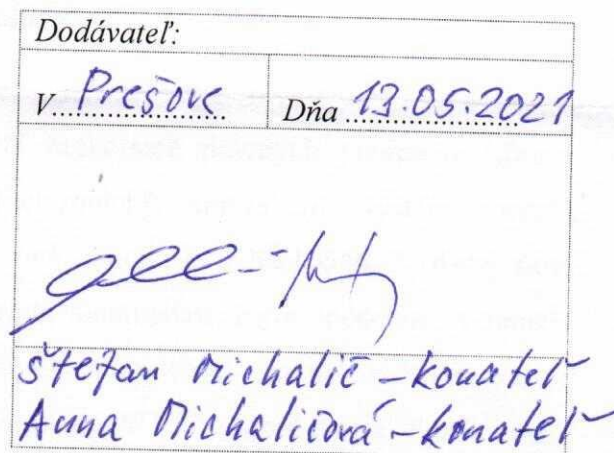 Dodávateľ:
V Prešove Dňa 13.05.2021
Štefan Michalič - konateľ
Anna Michaličová - konateľ